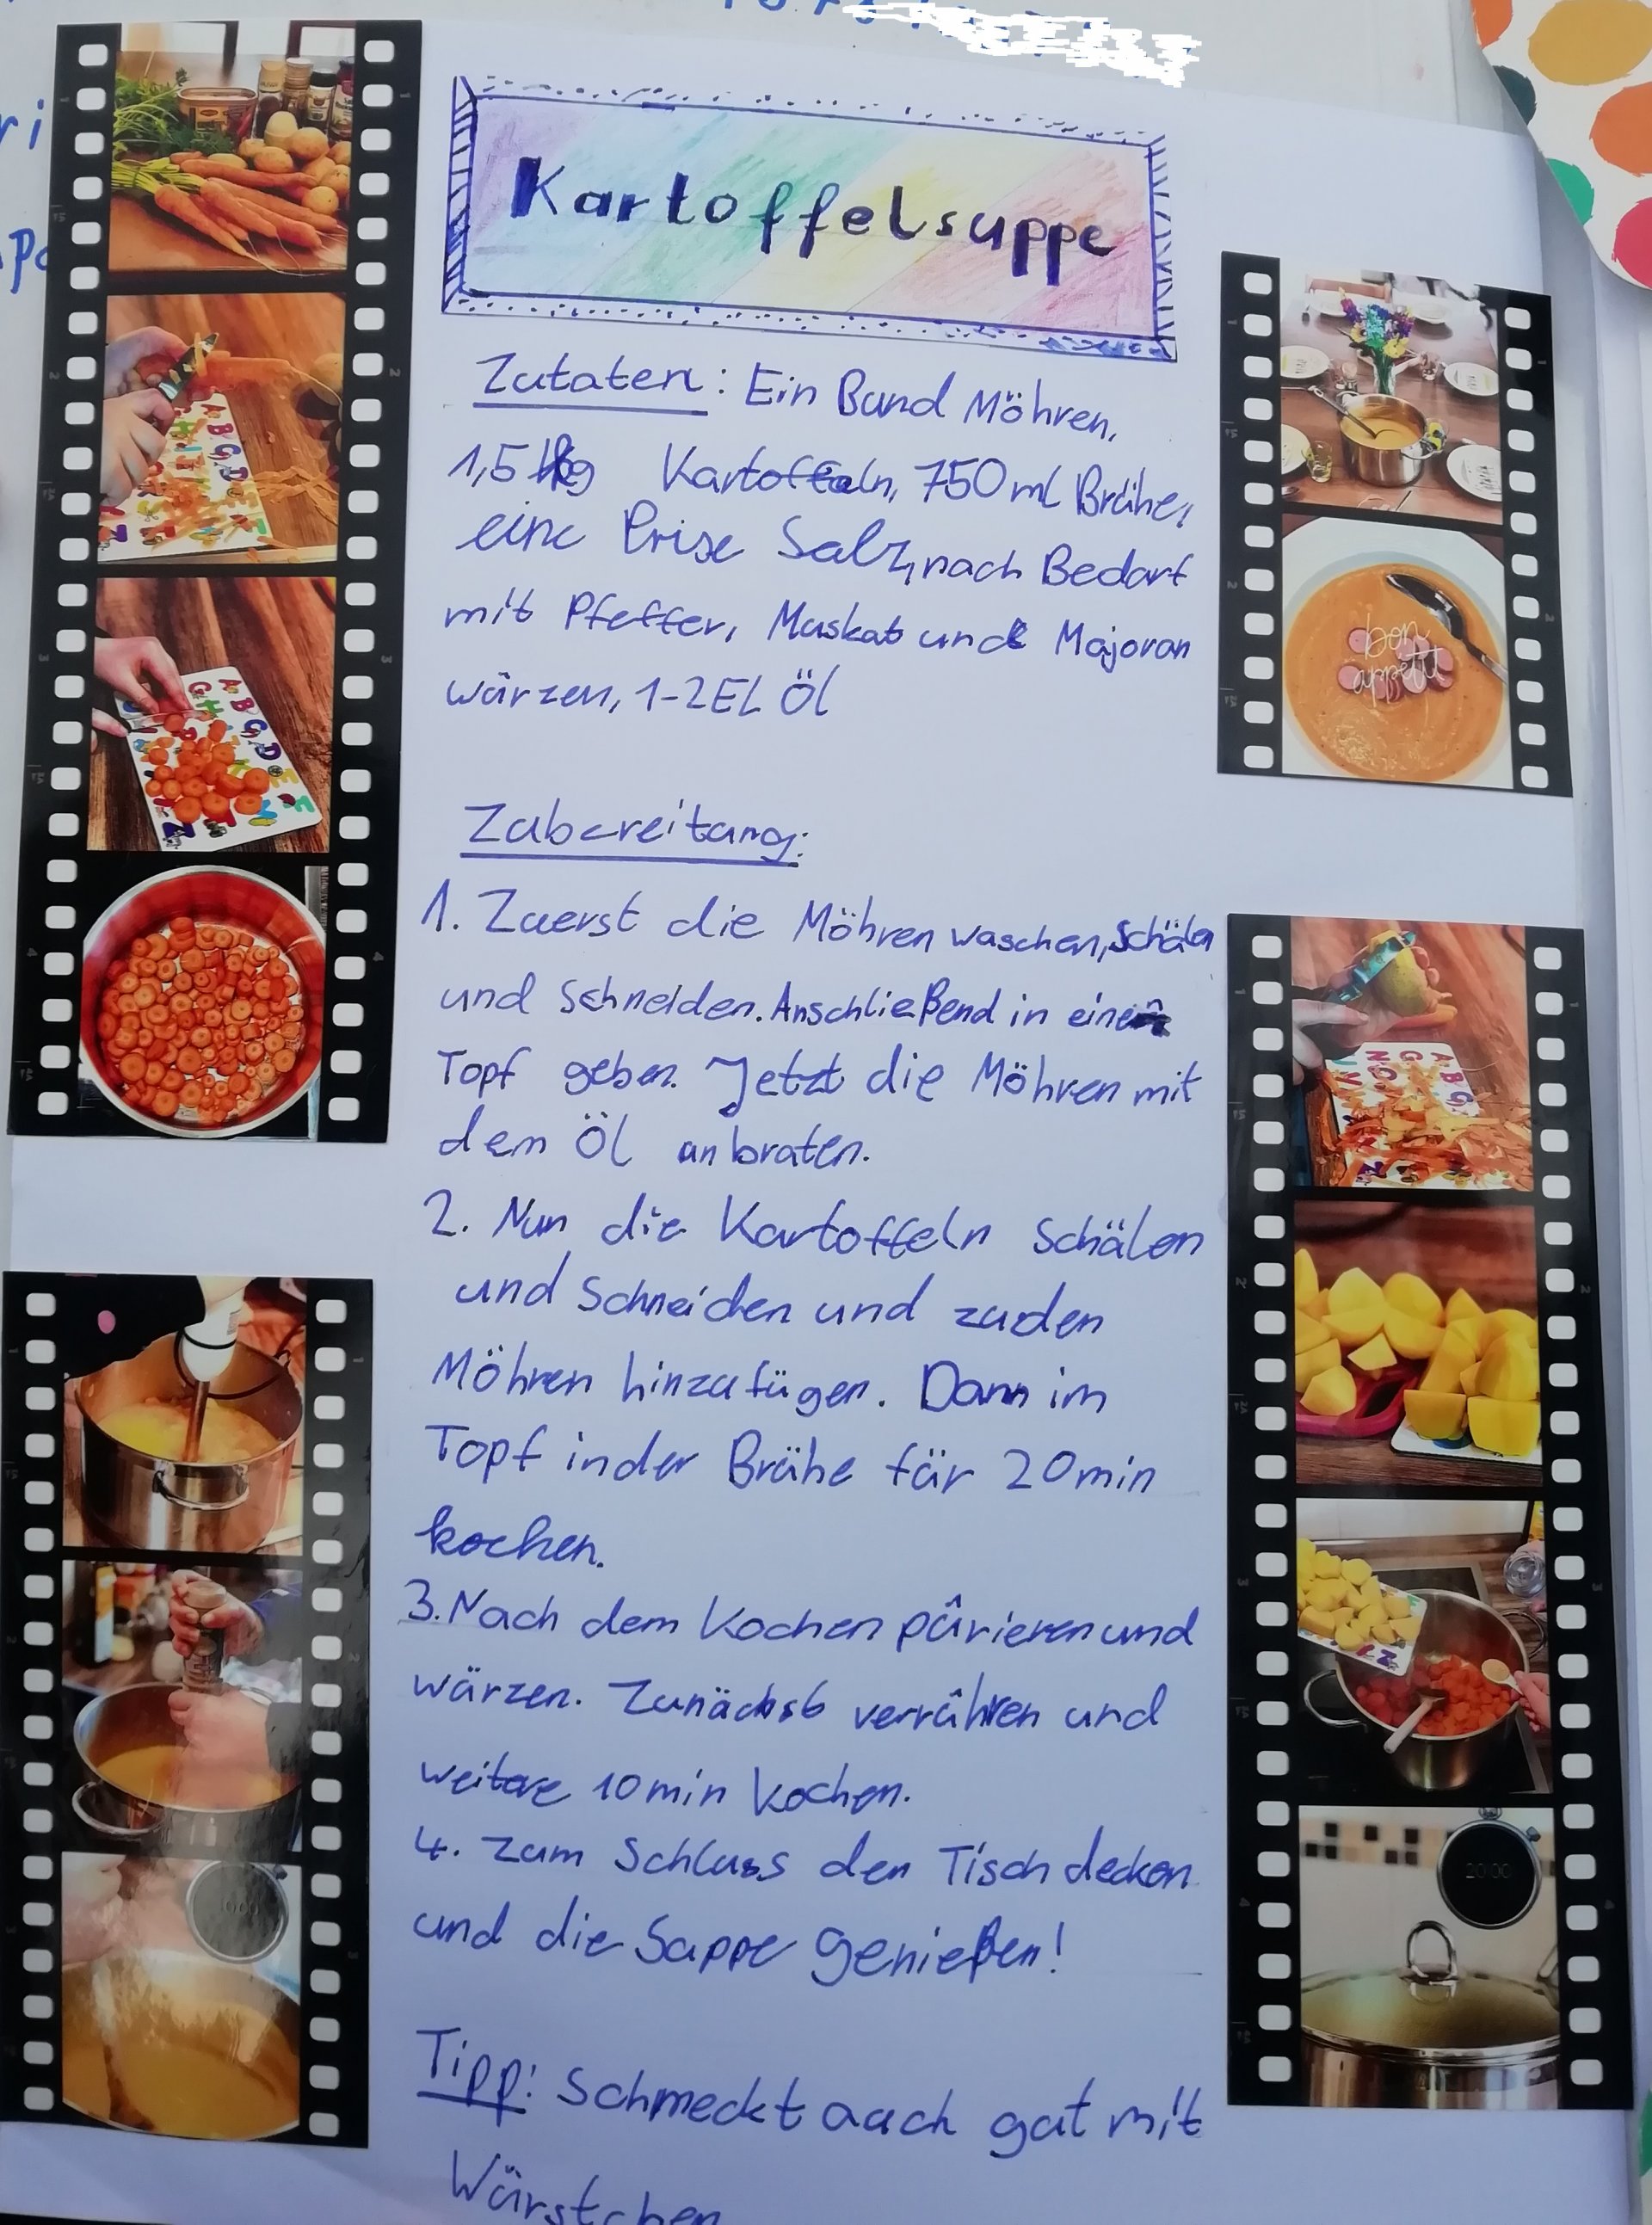 Kartoffelsuppe
Zutaten: Ein Bund Möhren,
1,5 kg Kartoffeln, 750 ml Brühe,
eine Prise Salz, nach Bedarf
mit Pfeffer, Muskat und Majoran
würzen, 1-2 EL Öl
Zubereitung:
1. Zuerst die Möhren waschen, schälen
und schneiden. Anschließend in einen
Topf geben. Jetzt die Möhren mit
dem Öl anbraten.
2. Nun die Kartoffeln schälen
und schneiden und zu den
Möhren hinzufügen. Dann im
Topf in der Brühe für 20 min
kochen.
3. Nach dem Kochen pürieren und
würzen. Zunächst verrühren und
weitere 10 min kochen.
4. Zum Schluss den Tisch decken
und die Suppe genießen!
Tipp: Schmeckt auch gut mit
Würstchen
20:00